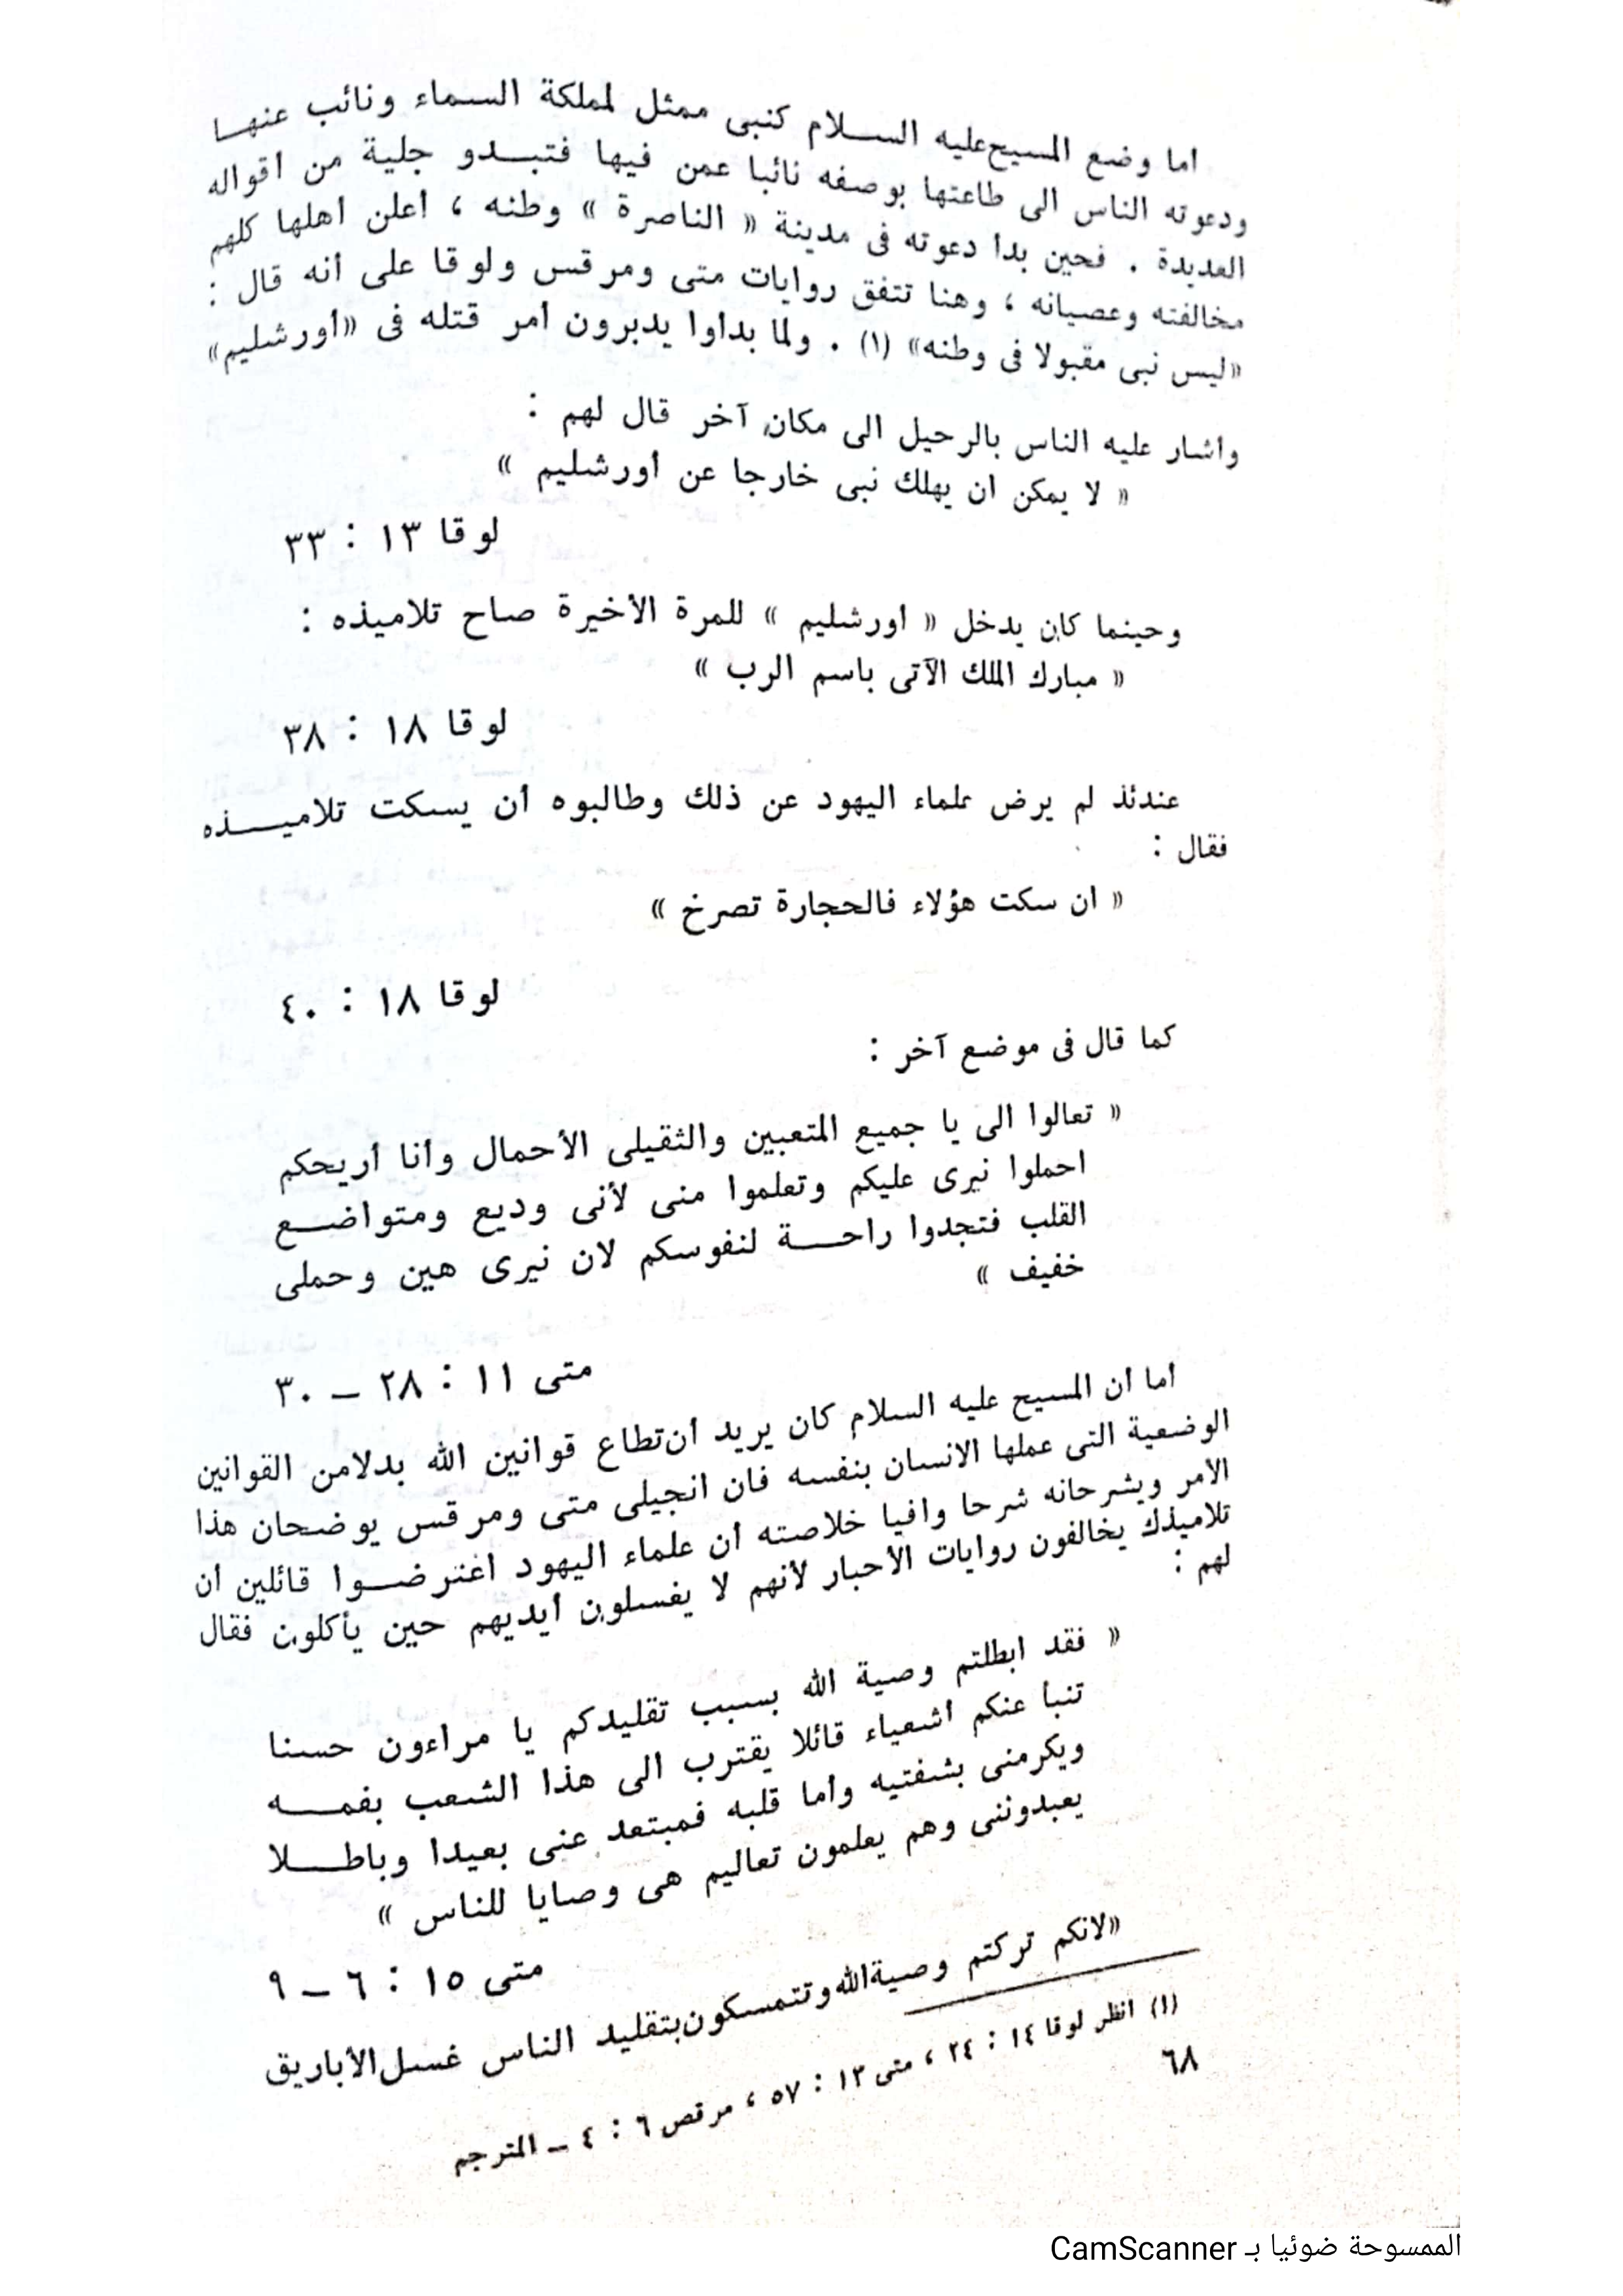 أما وضع المسيح عليه السلام كنبى ممثل لمملكة السماء ونائب عنها
ودعوته الناس الى طاعتها بوصفه نائبا عمن فيها فتبدو جلية من أقواله
العديدة . فحين بدأ دعوته فى مدينة « الناصرة » وطنه ، أعلن أهلها كلهم
مخالفته وعصيانه ، وهنا تتفق روايات متى ومرقس ولوقا على أنه قال :
«ليس نبى مقبولا فى وطنه» (١) . ولما بدأوا يدبرون أمر قتله فى «أورشليم»
وأشار عليه الناس بالرحيل الى مكان آخر قال لهم :
« لا يمكن ان يهلك نبى خارجا عن أورشليم »
لوقا ١٣ : ٣٣
وحينما كان يدخل « أورشليم » للمرة الأخيرة صاح تلاميذه :
« مبارك الملك الآتى باسم الرب »
لوقا ١٨ : ٣٨
عندئذ لم يرض علماء اليهود عن ذلك وطالبوه أن يسكت تلاميذه
فقال :
« ان سكت هؤلاء فالحجارة تصرخ »
لوقا ١٨ : ٤٠
كما قال فى موضع آخر :
« تعالوا الى يا جميع المتعبين والثقيلى الأحمال وأنا أريحكم
احملوا نيرى عليكم وتعلموا منى لأنى وديع ومتواضع
القلب فتجدوا راحة لنفوسكم لان نيرى هين وحملى
خفيف »
متى ١١ : ٢٨ – ٣٠
أما أن المسيح عليه السلام كان يريد أن تطاع قوانين الله بدلا من القوانين
الوضعية التى عملها الانسان بنفسه فان انجيلى متى ومرقس يوضحان هذا
الأمر ويشرحانه شرحا وافيا خلاصته أن علماء اليهود اعترضوا قائلين أن
تلاميذك يخالفون روايات الأحبار لأنهم لا يغسلون أيديهم حين يأكلون فقال
لهم :
« فقد ابطلتم وصية الله بسبب تقليدكم يا مراءون حسنا
تنبأ عنكم أشعياء قائلا يقترب الى هذا الشعب بفمه
ويكرمنى بشفتيه وأما قلبه فمبتعد عنى بعيدا وباطلا
يعبدوننى وهم يعلمون تعاليم هى وصايا للناس »
متى ١٥ : ٦ – ٩
«لانكم تركتم وصية الله وتتمسكون بتقليد الناس غسل الأباريق
(١) انظر لوقا ١٤ : ٢٤ ، متى ١٣ : ٥٧ ، مرقص ٦ : ٤ – المترجم
٦٨
الممسوحة ضوئيا بـ CamScanner